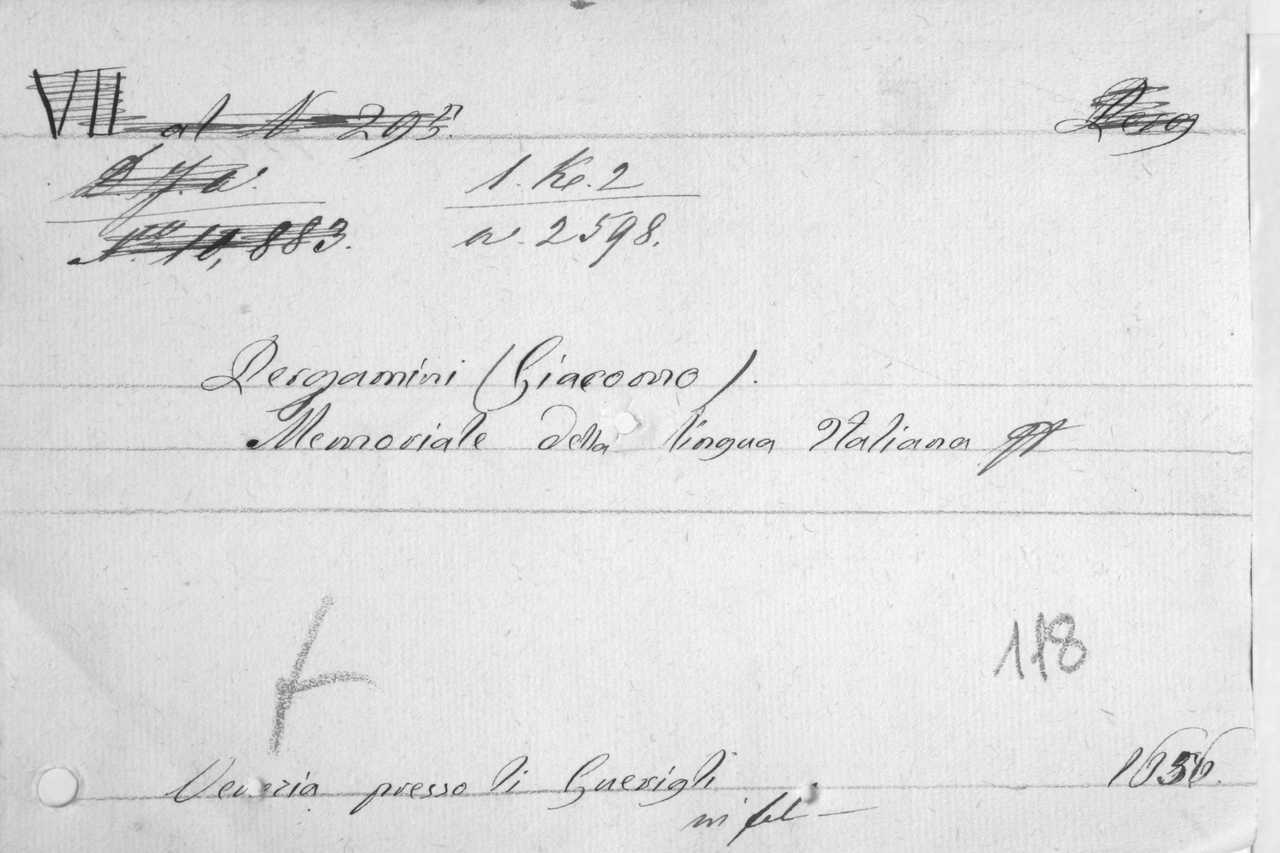 VII al N 295.
Perg
N.ro 10,883.
1. Ke. 2
n. 2598.
Pergamini (Giacomo).
Memoriale della lingua Italiana
118
Venezia presso li Guerigli 1656.
in fol